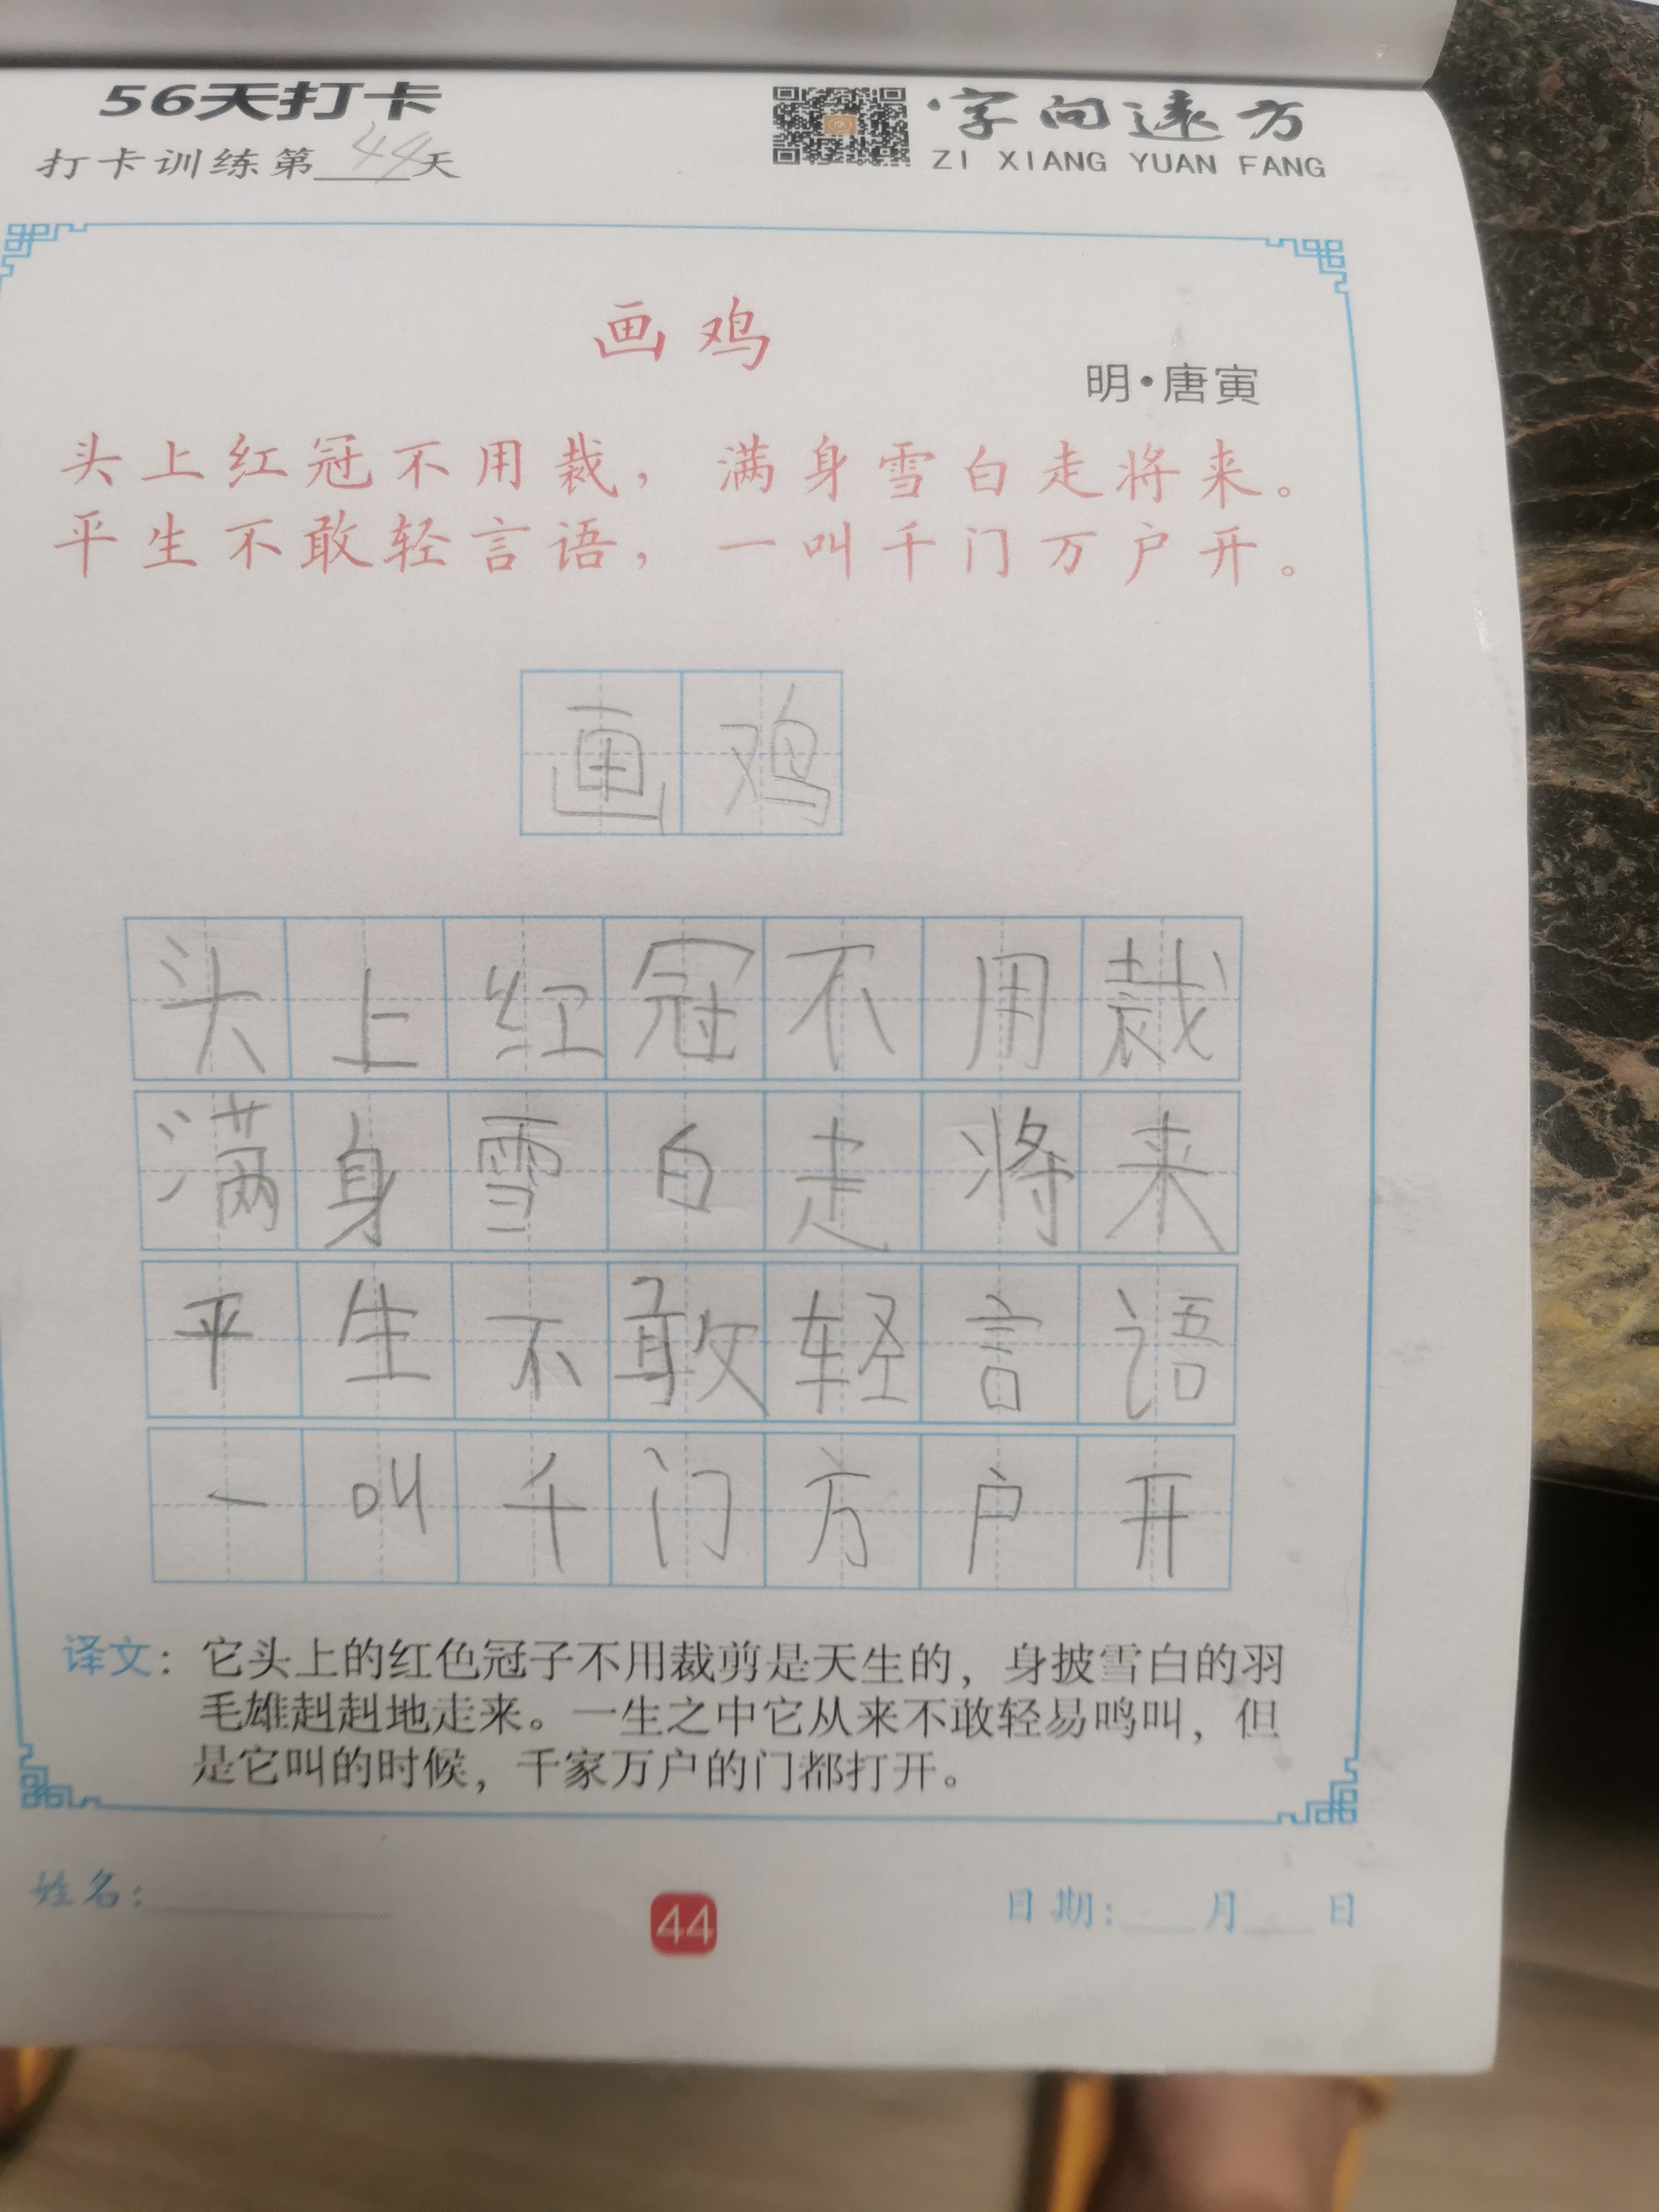 56天打卡
打卡训练第44天
字向远方
ZI XIANG YUAN FANG
画鸡
明·唐寅
头上红冠不用裁，满身雪白走将来。
平生不敢轻言语，一叫千门万户开。
画鸡
头上红冠不用裁
满身雪白走将来
平生不敢轻言语
一叫千门方户开
译文：它头上的红色冠子不用裁剪是天生的，身披雪白的羽
毛雄赳赳地走来。一生之中它从来不敢轻易鸣叫，但
是它叫的时候，千家万户的门都打开。
姓名：
44
日期：月日